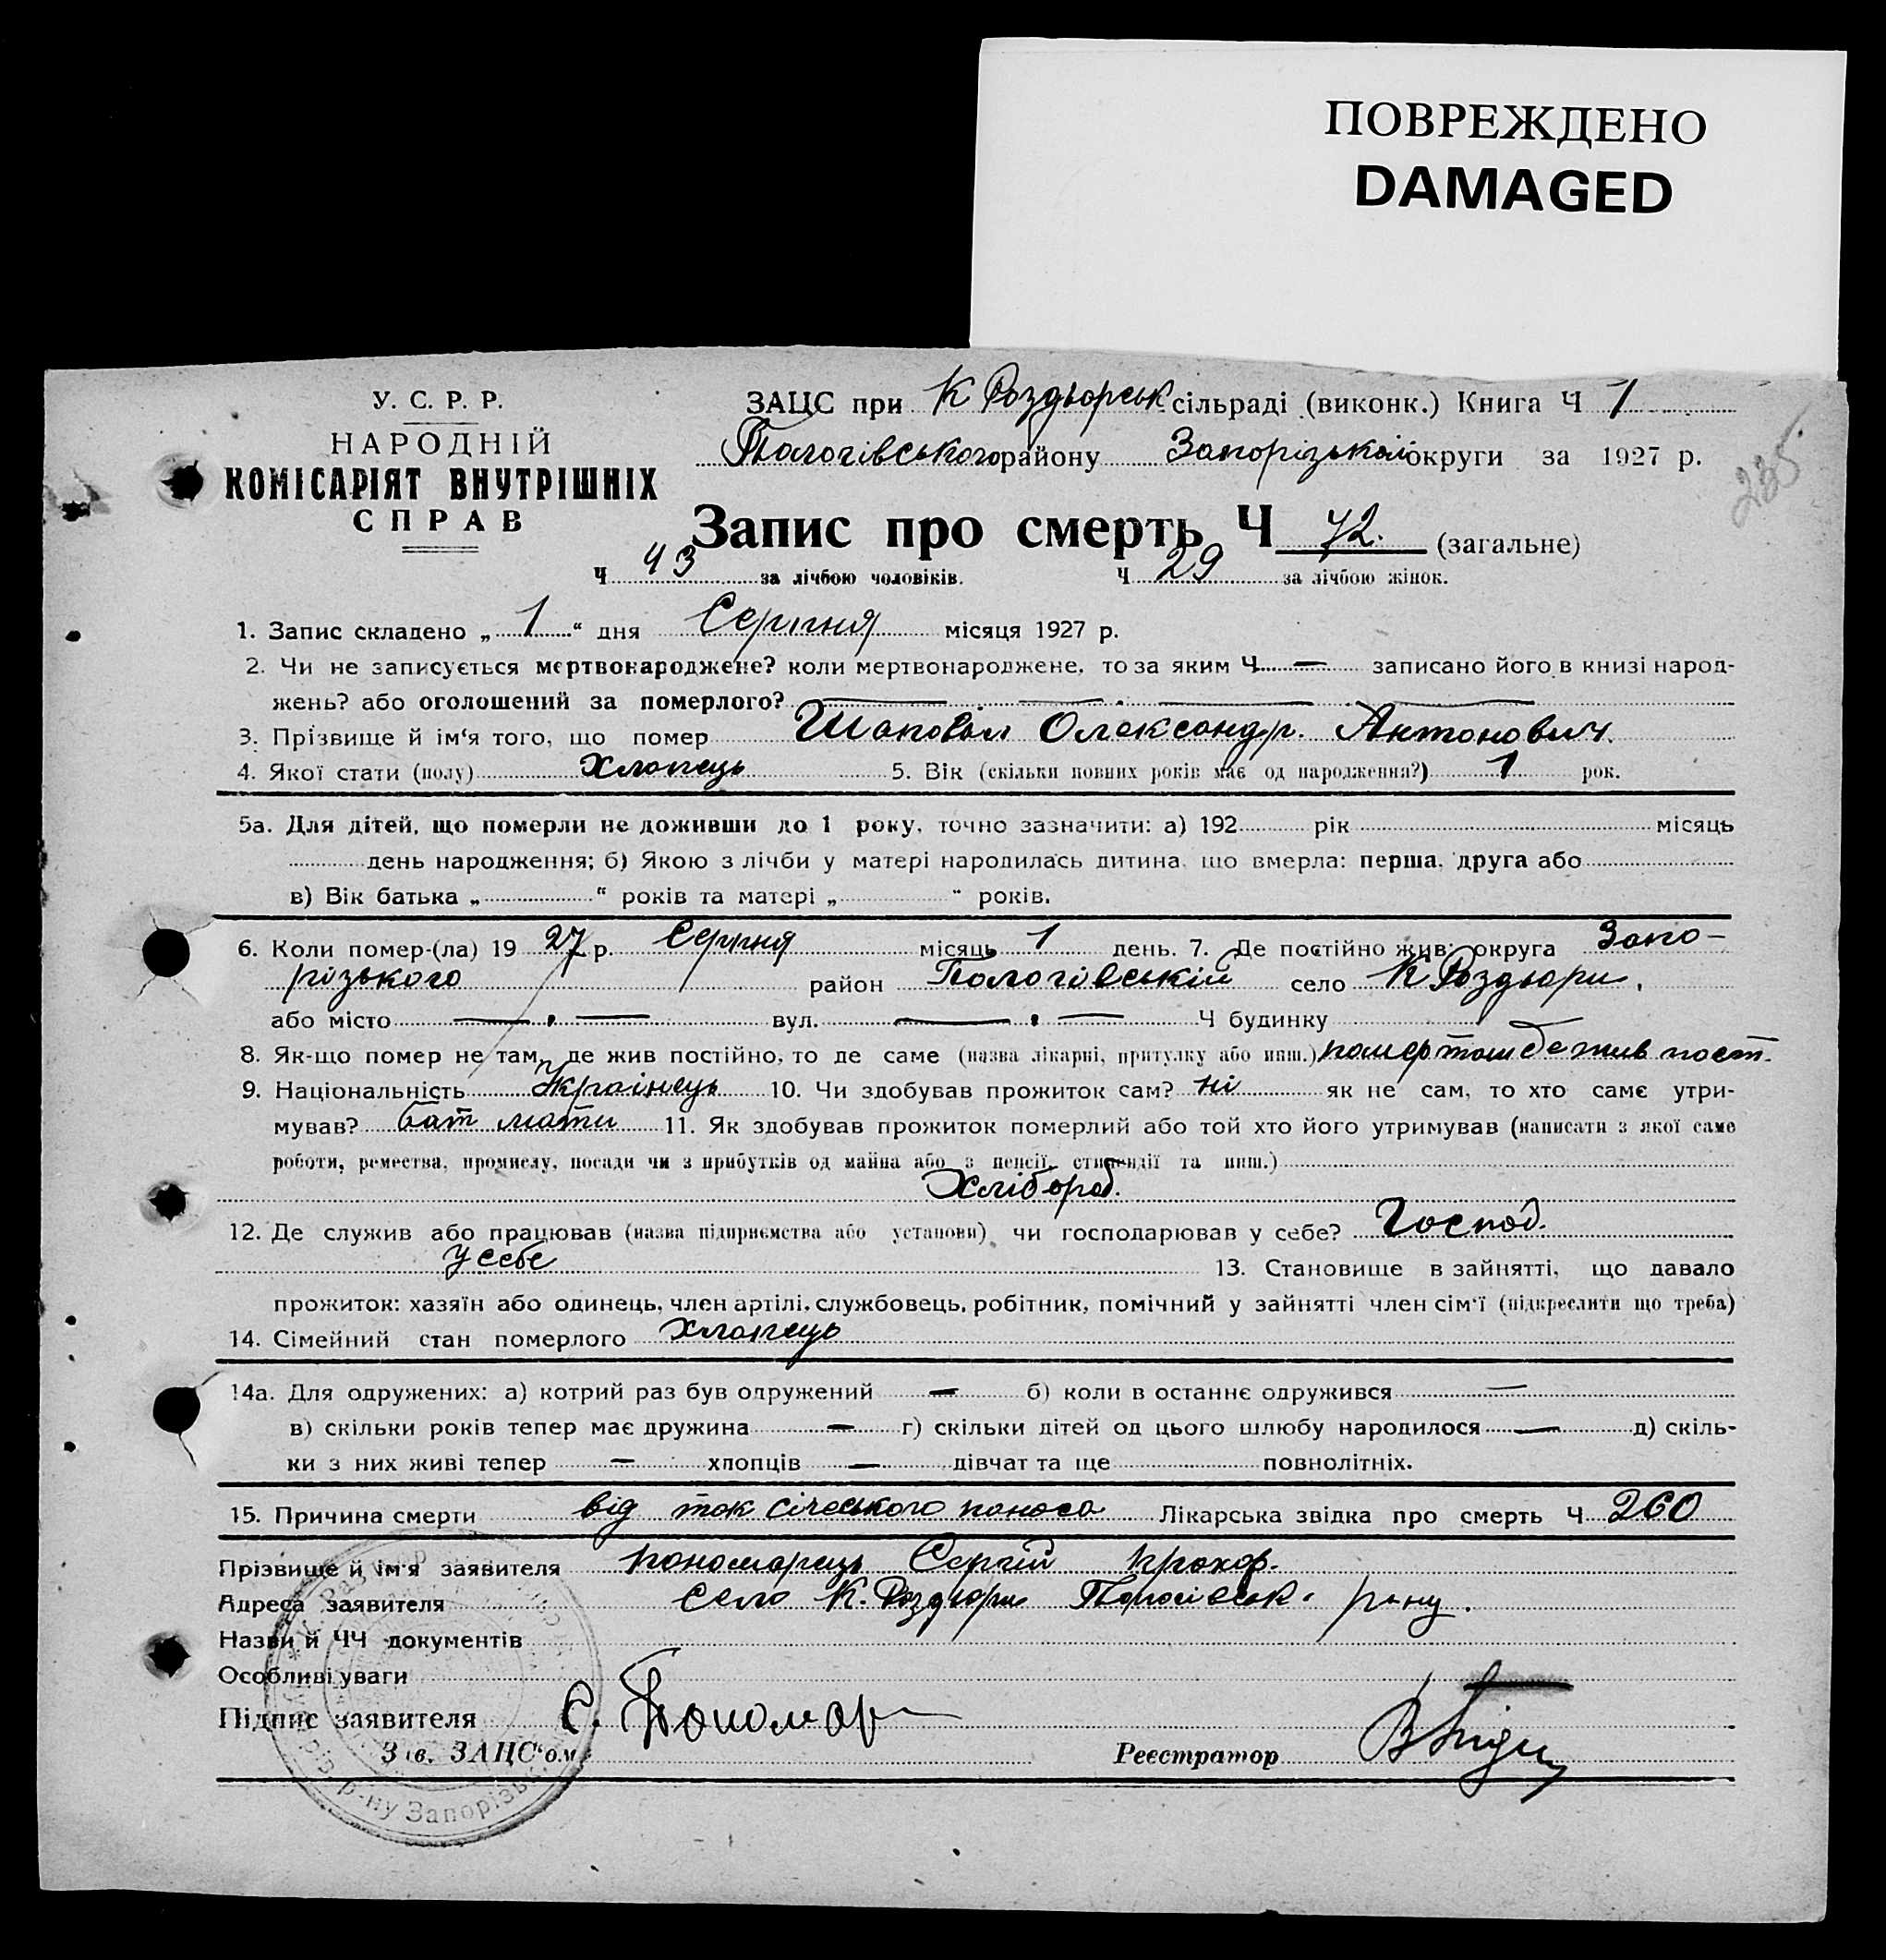 ПОВРЕЖДЕНО
DAMAGED
У. С. Р. Р.
НАРОДНІЙ
КОМІСАРІЯТ ВНУТРІШНІХ
СПРАВ
ЗАЦС при К Роздорськ сільраді (виконк.) Книга Ч 1
Пологівського району Запорізької округи за 1927 р.
235
Запис про смерть Ч 72. (загальне)
Ч 43 за лічбою чоловіків. Ч 29 за лічбою жінок.
1. Запис складено „ 1 “ дня Серпня місяця 1927 р.
2. Чи не записується мертвонароджене? коли мертвонароджене, то за яким Ч — записано його в книзі народ-
жень? або оголошений за померлого? — — — —
3. Прізвище й ім'я того, що помер Шаповал Олександр. Антонович.
4. Якої стати (полу) Хлопець 5. Вік (скільки повних років має од народження?) 1 рок.
5а. Для дітей, що померли не доживши до 1 року, точно зазначити: а) 192 рік місяць
день народження; б) Якою з лічби у матері народилась дитина, що вмерла: перша, друга або
в) Вік батька „ “ років та матері „ “ років.
6. Коли помер-(ла) 19 27 р. Серпня місяць 1 день. 7. Де постійно жив: округа Запо-
різького район Пологівській село К Роздори,
або місто — , — вул. — , — Ч будинку —
8. Як-що помер не там, де жив постійно, то де саме (назва лікарні, притулку або инш.) помер там де жив пост.
9. Національність Українець 10. Чи здобував прожиток сам? ні як не сам, то хто саме утри-
мував? бат мати 11. Як здобував прожиток померлий або той хто його утримував (написати з якої саме
роботи, ремества, промислу, посади чи з прибутків од майна або з пенсії, стипендії та инш.)
Хлібороб.
12. Де служив або працював (назва підприємства або установи), чи господарював у себе? Господ.
у себе 13. Становище в зайнятті, що давало
прожиток: хазяїн або одинець, член артілі, службовець, робітник, помічний у зайнятті член сім'ї (підкреслити що треба)
14. Сімейний стан померлого Хлопець
14а. Для одружених: а) котрий раз був одружений — б) коли в останнє одружився —
в) скільки років тепер має дружина — г) скільки дітей од цього шлюбу народилося — д) скіль-
ки з них живі тепер — хлопців — дівчат та ще повнолітніх.
15. Причина смерти від ток січеського поноса Лікарська звідка про смерть Ч 260
Прізвище й ім'я заявителя Пономарець Сергій Прохор.
Адреса заявителя село К. Роздори Пологівськ. р-ну.
Назви й ЧЧ документів
Особливі уваги
Підпис заявителя С. Пономар
Зав. ЗАЦС'ом Реєстратор
р-ну Запорізьк